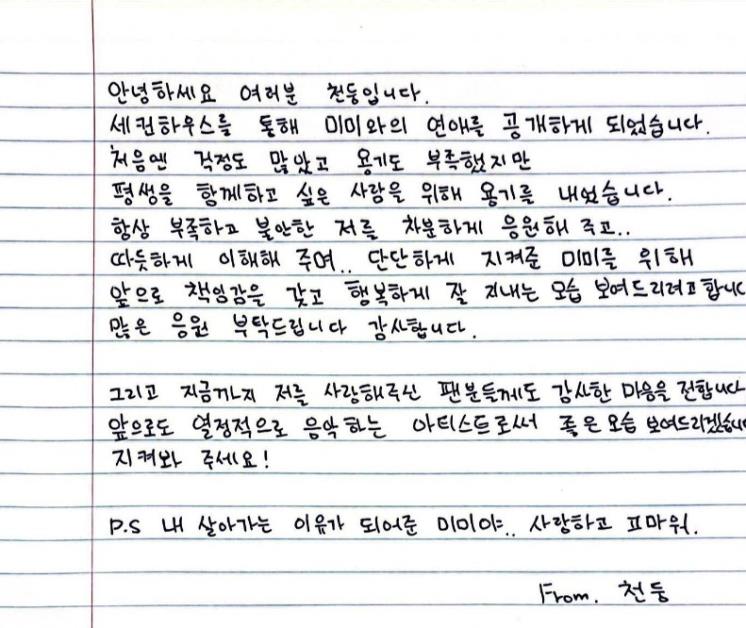 안녕하세요 여러분 천둥입니다.
세컨하우스를 통해 미미와의 연애를 공개하게 되었습니다.
처음엔 걱정도 많았고 용기도 부족했지만
평생을 함께하고 싶은 사람을 위해 용기를 내었습니다.
항상 부족하고 불안한 저를 차분하게 응원해 주고..
따듯하게 이해해 주며.. 단단하게 지켜준 미미를 위해
앞으로 책임감을 갖고 행복하게 잘 지내는 모습 보여드리려고 합니다
많은 응원 부탁드립니다 감사합니다.
그리고 지금까지 저를 사랑해주신 팬분들께도 감사한 마음을 전합니다
앞으로도 열정적으로 음악하는 아티스트로써 좋은 모습 보여드리겠습니
지켜봐 주세요!
P.S 내 살아가는 이유가 되어준 미미야.. 사랑하고 고마워.
From. 천둥